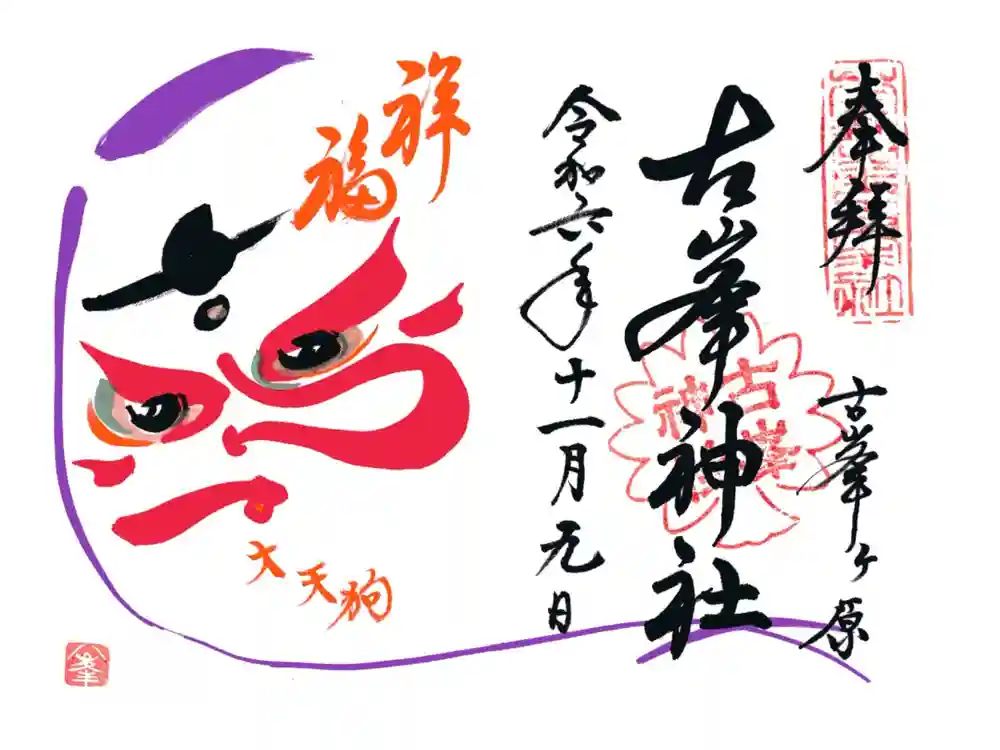 奉拝
古峯ヶ原
古峯神社
古峯神社
令和六年十一月元日
祥福
大天狗
峯